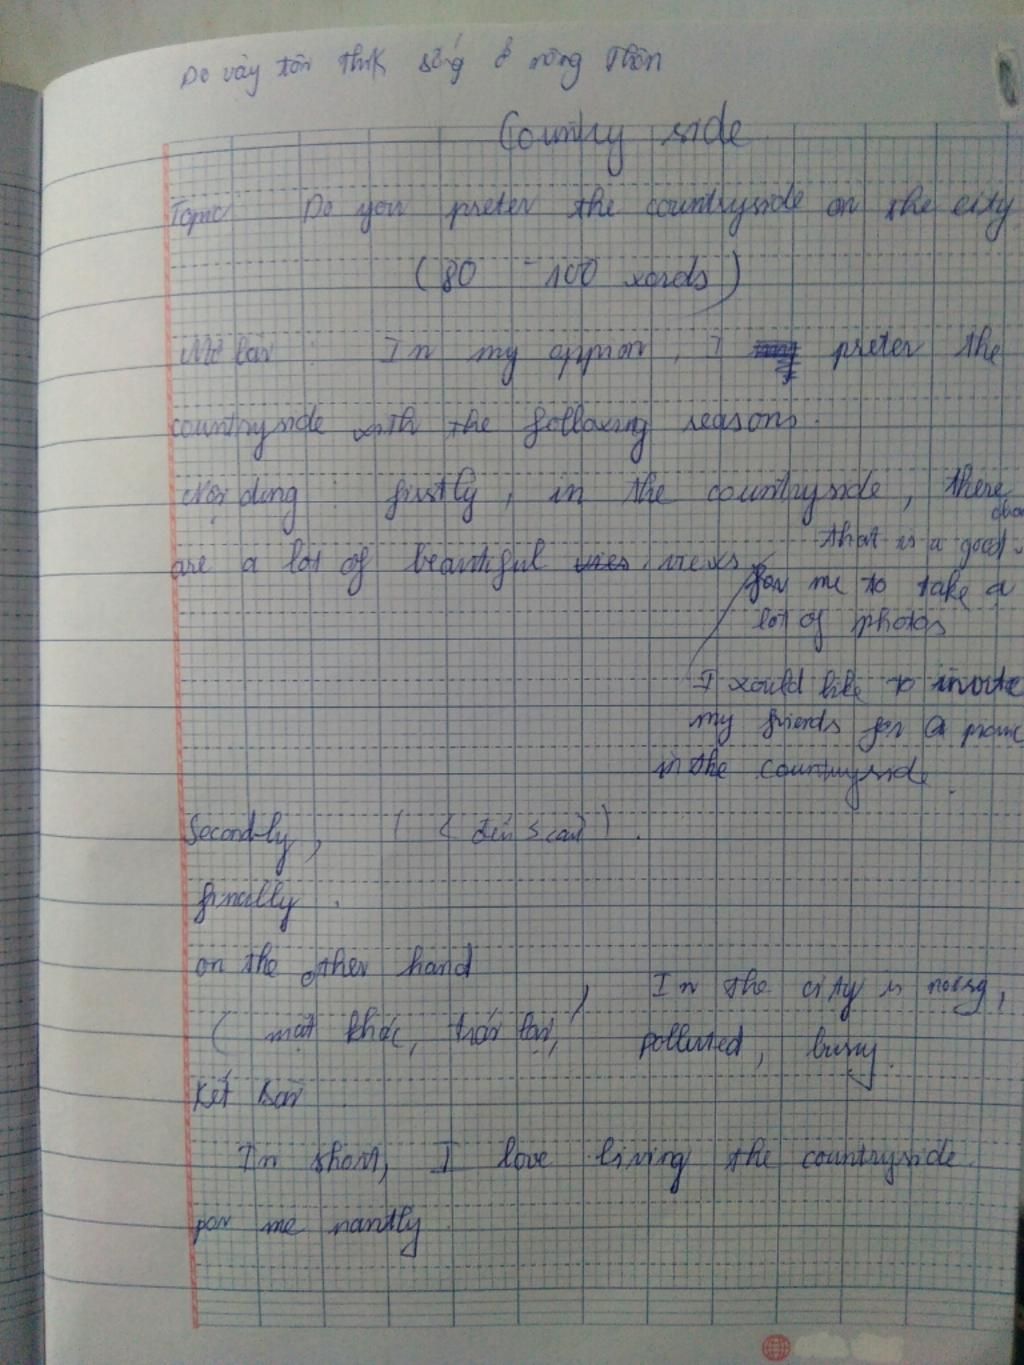 Do vậy tôi thik sống ở nông thôn
Country side
Topic: Do you preter the countryside on the city
(80 - 100 words)
Mở bài: In my oppion, I preter the
countryside with the following reasons.
Nội dung: firstly, in the countryside, there
are a lot of beautiful views
that is a good
for me to take a
lot of photos
I would like to invite
my friends for a
in the countryside.
Secondly, (
finally.
on the other hand
(mặt khác, trái lại,)
In the city is noisy,
polluted, busy.
Kết bài
In short, I love living the countryside.